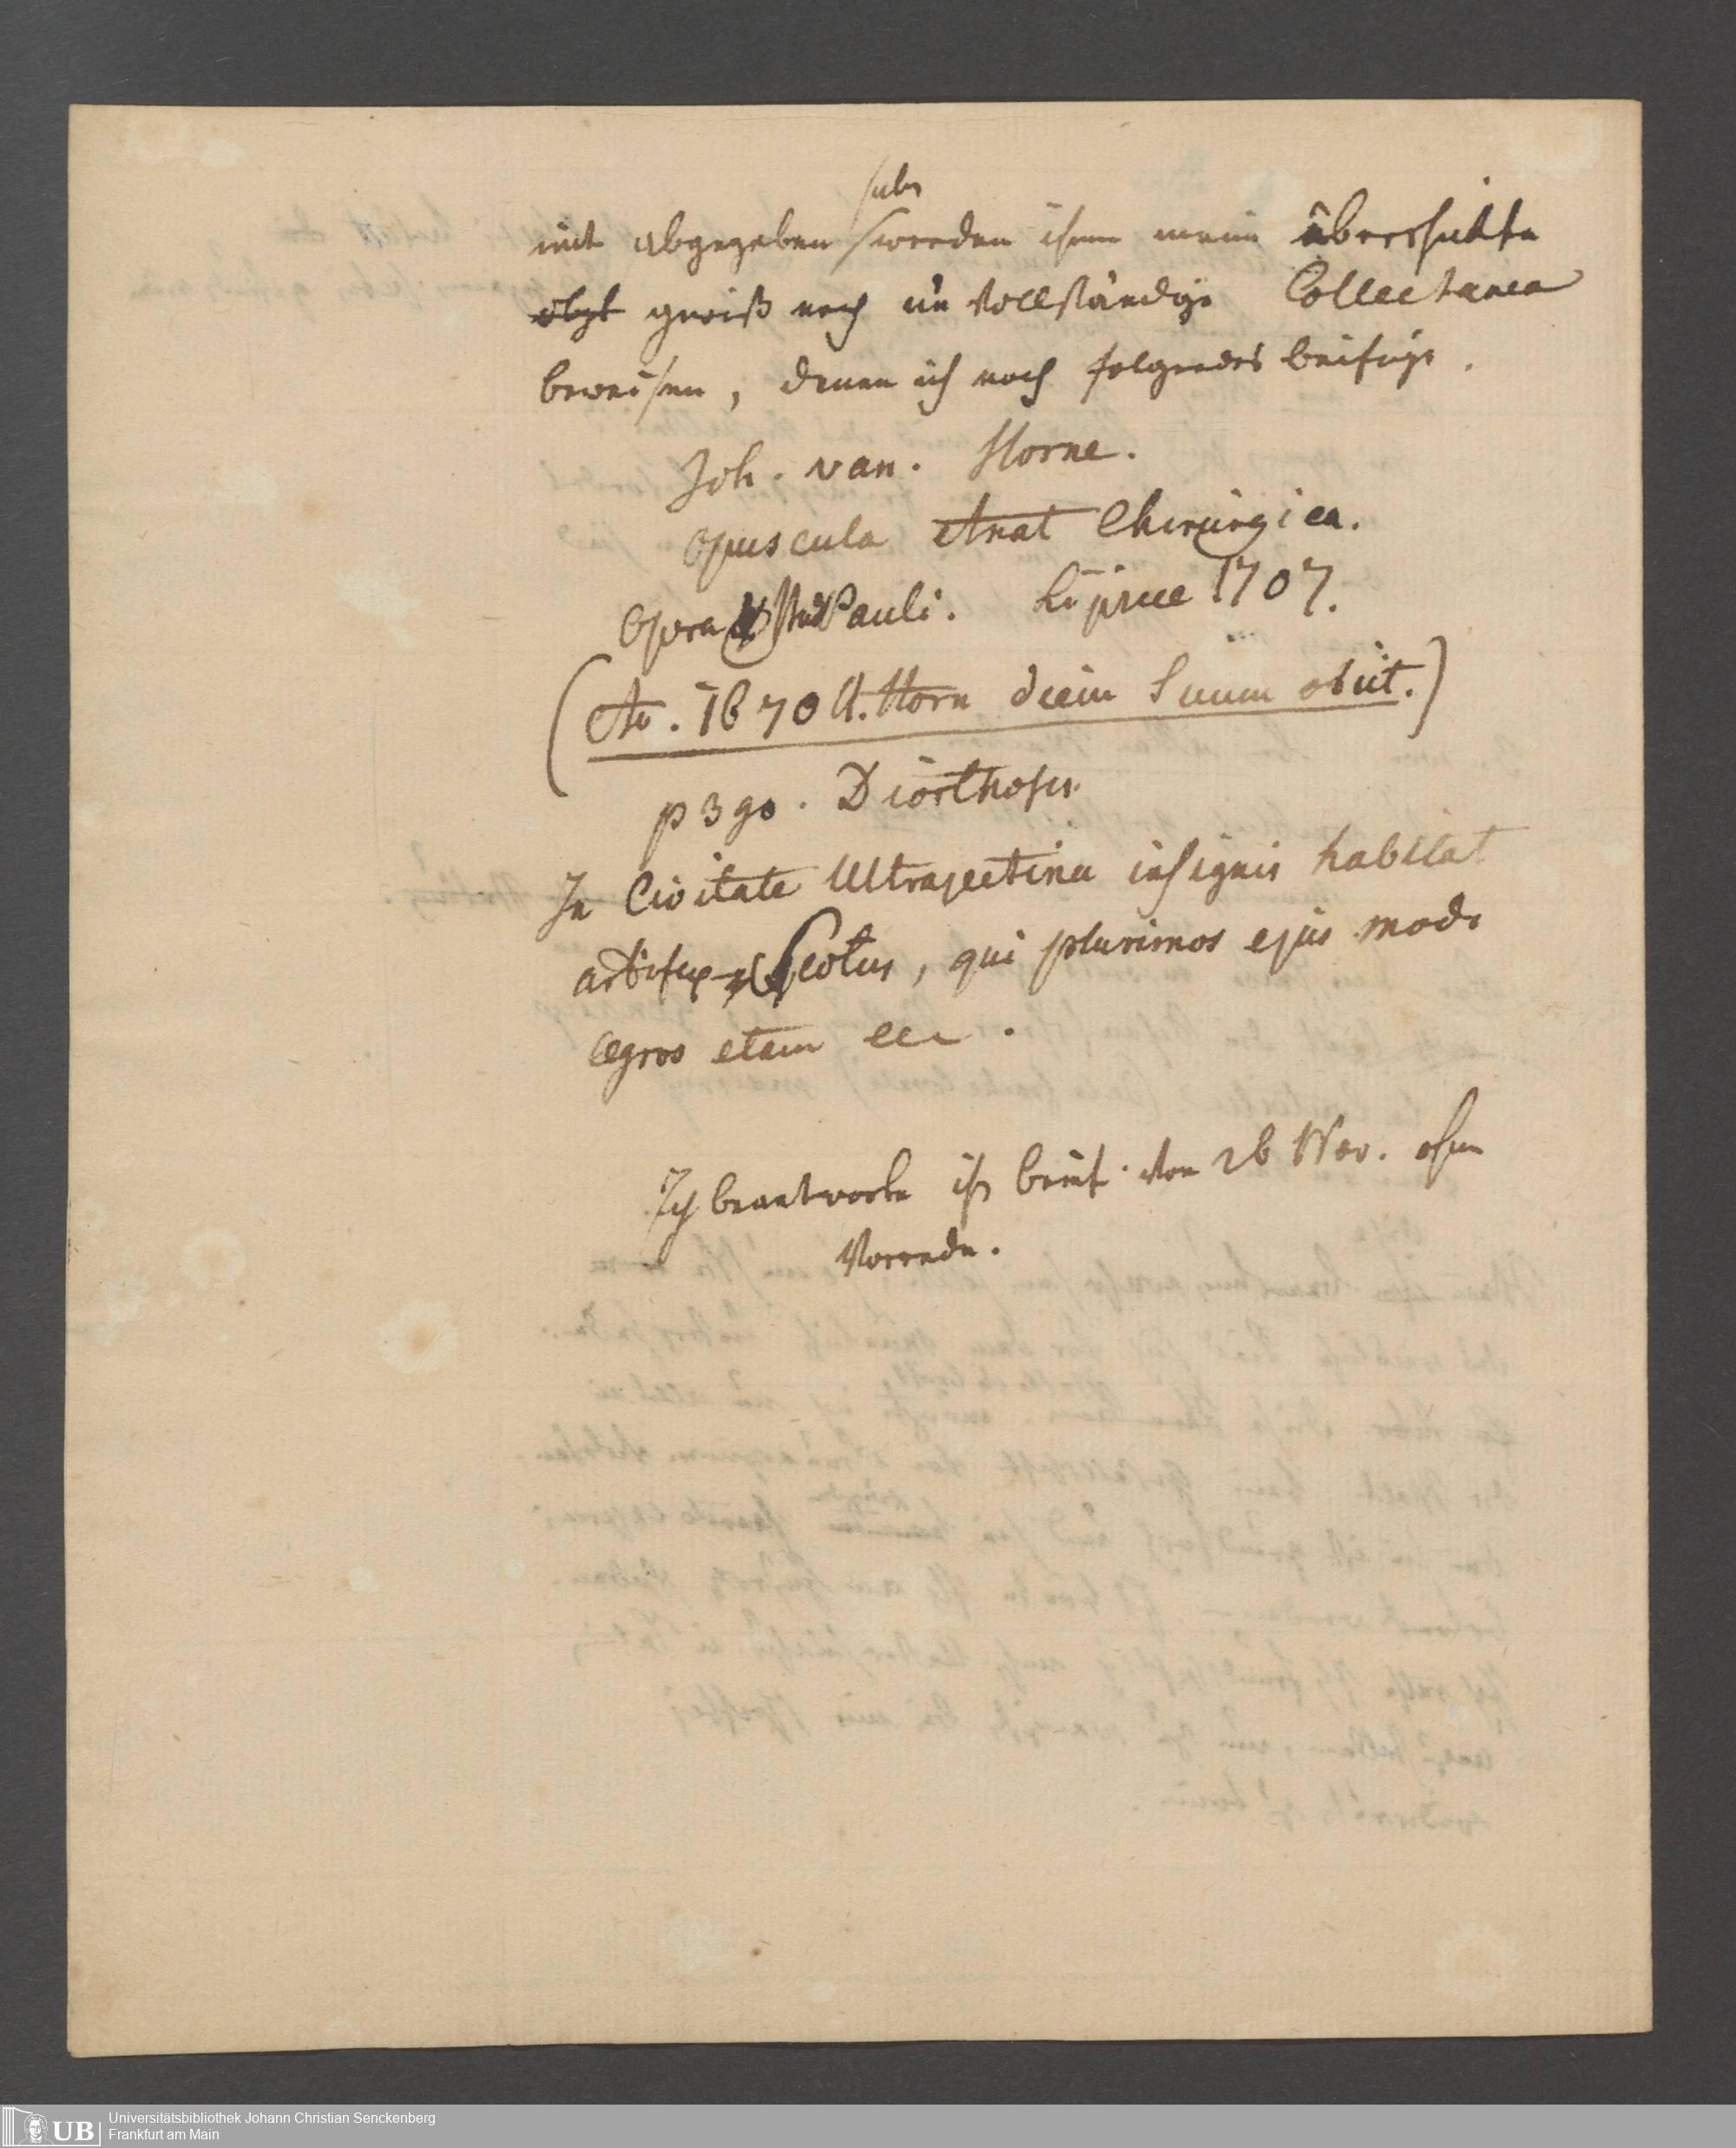 haben
mit abgegeben werden ihnen meine überschickte
obgl gewiß noch un Vollständige Collectanea
beweisen, denen ich noch folgendes beifüge.
Joh. van. Horne.
opuscula Anat Chirurgica.
Opera Pauli. Lipsiae 1707.
(Ao. 1670 V. Horn diem Suum obiit.)
p 390. Diorthosis
In Civitate Ultrajectina insignis habitat
artifex Scotus, qui plurimos ejus modi
aegros etam
Ich beantworte ihr brief von 26 Nov. ohne
Vorrede.
Universitätsbibliothek Johann Christian Senckenberg
Frankfurt am Main
UB